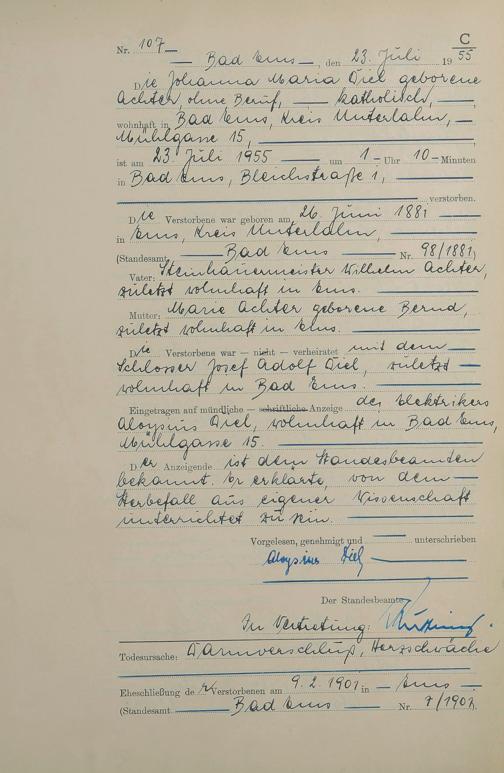 C
Nr. 107
Bad Ems, den 23. Juli 1955
Die Johanna Maria Diel geborene
Achter, ohne Beruf, katholisch,
wohnhaft in Bad Ems, Kreis Unterlahn,
Mühlgasse 15,
ist am 23. Juli 1955 um 1 Uhr 10 Minuten
in Bad Ems, Bleichstraße 1,
verstorben.
Die Verstorbene war geboren am 26. Juni 1881
in Ems, Kreis Unterlahn,
(Standesamt Bad Ems Nr. 98/1881)
Vater: Steinhauermeister Wilhelm Achter,
zuletzt wohnhaft in Ems.
Mutter: Marie Achter geborene Bernd,
zuletzt wohnhaft in Ems.
Die Verstorbene war — nicht — verheiratet mit dem
Schlosser Josef Adolf Diel, zuletzt
wohnhaft in Bad Ems.
Eingetragen auf mündliche — schriftliche Anzeige des Elektrikers
Aloysius Diel, wohnhaft in Bad Ems,
Mühlgasse 15.
Der Anzeigende ist dem Standesbeamten
bekannt. Er erklärte, von dem
Sterbefall aus eigener Wissenschaft
unterrichtet zu sein.
Vorgelesen, genehmigt und unterschrieben
Aloysius Diel
Der Standesbeamte
In Vertretung:
Todesursache: Darmverschluß, Herzschwäche
Eheschließung der Verstorbenen am 9.2.1901 in Ems
(Standesamt Bad Ems Nr. 7/1901)